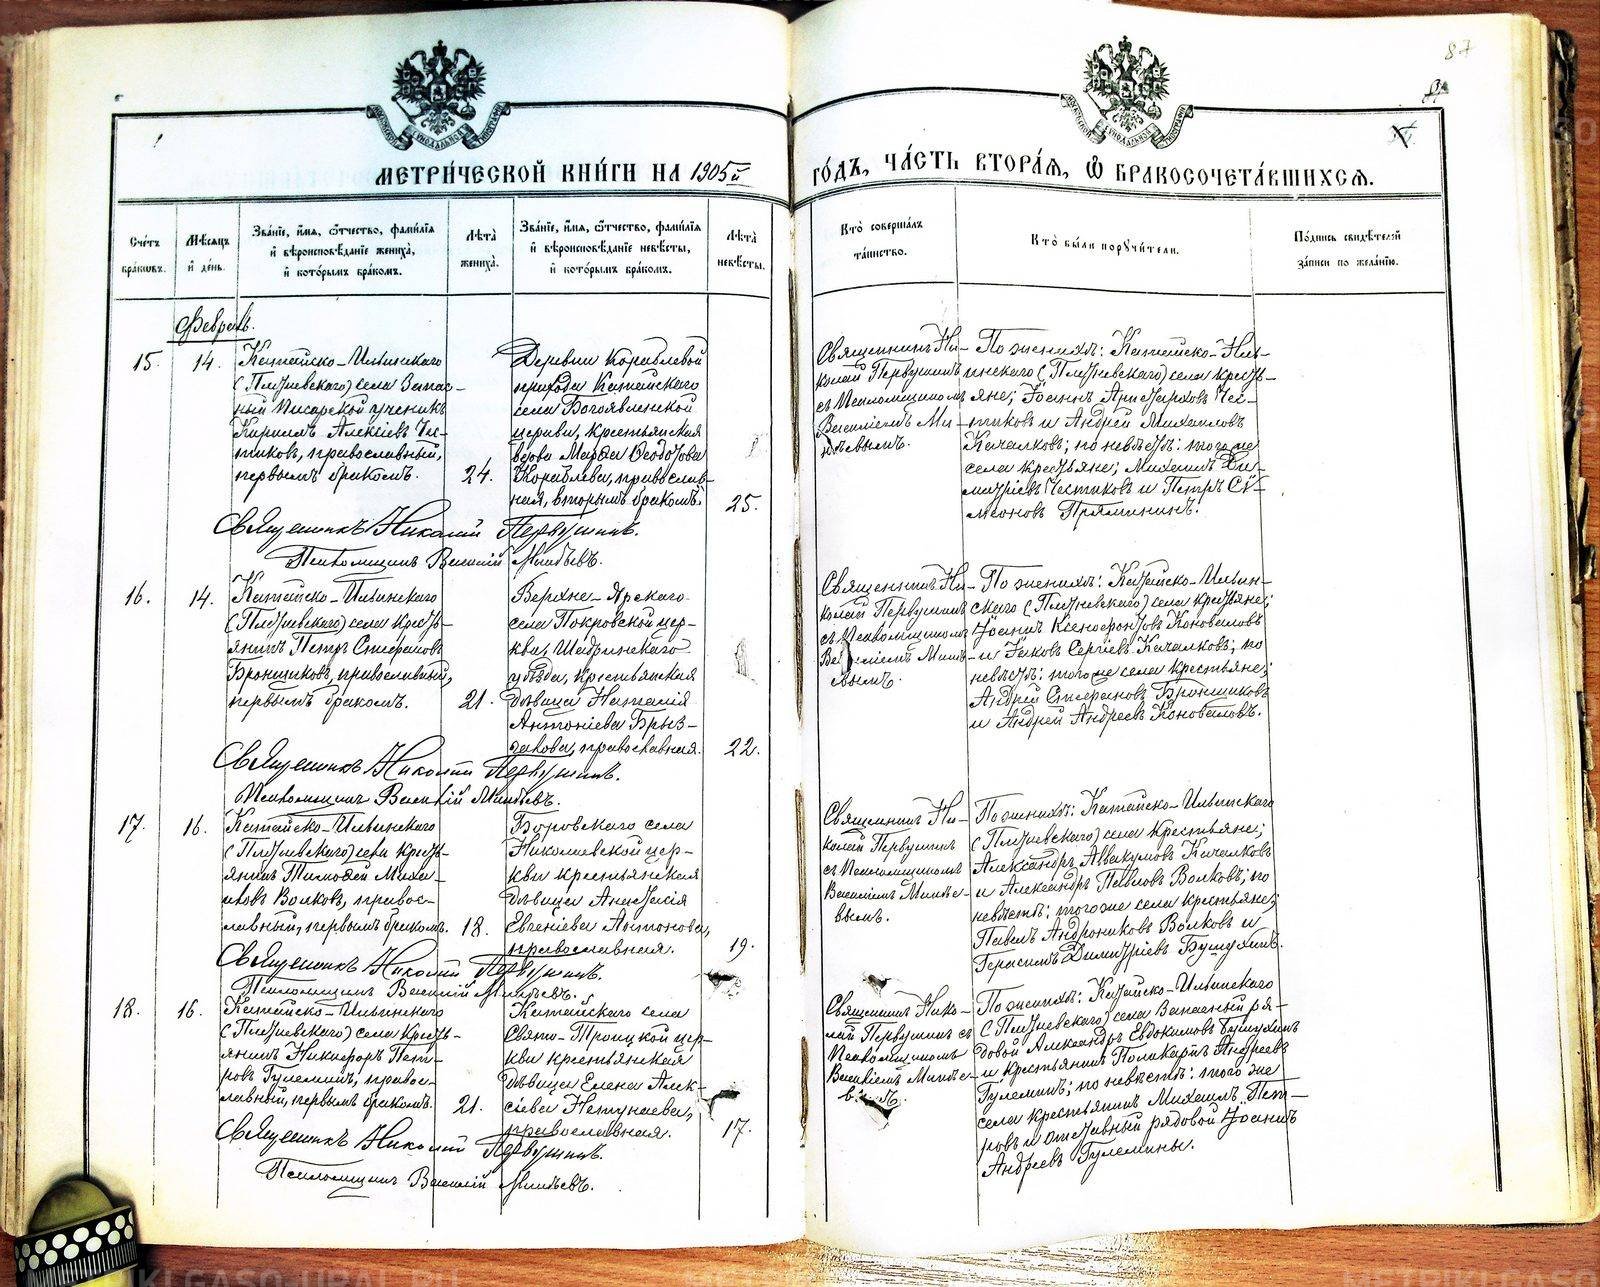 87
МЕТРИ́ЧЕСКОЙ КНИ́ГИ НА 1905й
ГО́ДЪ, ЧА́СТЬ ВТОРА́Я, Ѡ БРАКОСОЧЕТА́ВШИХСЯ.
Сче́тъ браковъ.
Мѣ́сяцъ и де́нь.
Зва́нїе, и́мя, ѻ́тчество, фами́лїя и вѣроисповѣ́данїе жениха̀, и кото́рымъ бра́комъ.
Лѣ́та жениха̀.
Зва́нїе, и́мя, ѻ́тчество, фами́лїя и вѣроисповѣ́данїе невѣ́сты, и кото́рымъ бра́комъ.
Лѣ́та невѣ́сты.
Кто̀ соверша́лъ та́инство.
Кто̀ бы́ли поручи́тели.
По́дпись свидѣ́телей за́писи по жела́нїю.
Февраль.
15.
14.
Катайско-Ильинскаго
(Плотневскаго) села Запас-
ный писарской ученикъ
Кириллъ Алексіевъ Чи-
стиковъ, православный,
первымъ бракомъ.
24.
Деревни Кораблевой
прихода Катайскаго
села Богоявленской
церкви, крестьянская
вдова Марѳа Ѳеодотова
Кораблева, православ-
ная, вторымъ бракомъ.
25.
Священникъ Ни-
колай Первушинъ
съ Псаломщикомъ
Василіемъ Ми-
нѣевымъ.
По женихѣ: Катайско-Иль-
инскаго (Плотневскаго) села кресть-
яне; Іоаннъ Аристарховъ Чис-
тиковъ и Андрей Михаиловъ
Качалковъ; по невѣстѣ: того же
села крестьяне; Михаилъ Ди-
митріевъ Чистиковъ и Петръ Си-
меоновъ Прямининъ.
Священникъ Николай Первушинъ.
Псаломщикъ Василій Минѣевъ.
16.
14.
Катайско-Ильинскаго
(Плотневскаго) села кресть-
янинъ Петръ Стефановъ
Бронщиковъ, православный,
первымъ бракомъ.
21.
Верхне-Ярскаго
села Покровской цер-
кви, Шадринскаго
уѣзда, крестьянская
дѣвица Наталія
Антоніева Брыз-
галова, православная.
22.
Священникъ Ни-
колай Первушинъ
съ Псаломщикомъ
Василіемъ Минѣ-
вымъ.
По женихѣ: Катайско-Ильин-
скаго (Плотневскаго) села крестьяне;
Іоаннъ Ксенофонтовъ Коноваловъ
и Іаковъ Сергіевъ Качалковъ; по
невѣстѣ: того же села крестьяне;
Андрей Стефановъ Бронщиковъ
и Андрей Андреевъ Коноваловъ.
Священникъ Николай Первушинъ.
Псаломщикъ Василій Минѣевъ.
17.
16.
Катайско-Ильинскаго
(Плотневскаго) села кресть-
янинъ Тимоѳей Михаи-
ловъ Волковъ, правос-
лавный, первымъ бракомъ.
18.
Боровскаго села
Николаевской цер-
кви крестьянская
дѣвица Анастасія
Евгеніева Антонова,
православная.
19.
Священникъ Ни-
колай Первушинъ
съ Псаломщикомъ
Василіемъ Минѣе-
вымъ.
По женихѣ: Катайско-Ильинскаго
(Плотневскаго) села Крестьяне;
Александръ Аввакумовъ Качалковъ
и Александръ Павловъ Волковъ; по
невѣстѣ: того же села крестьяне;
Павелъ Андрониковъ Волковъ и
Герасимъ Димитріевъ Бушухинъ.
Священникъ Николай Первушинъ.
Псаломщикъ Василій Минѣевъ.
18.
16.
Катайско-Ильинскаго
(Плотневскаго) села кресть-
янинъ Никифоръ Пет-
ровъ Гулеминъ, правос-
лавный, первымъ бракомъ.
21.
Катайскаго села
Свято-Троицкой цер-
кви крестьянская
дѣвица Елена Алек-
сіева Нетунаева,
православная.
17.
Священникъ Нико-
лай Первушинъ съ
Псаломщикомъ
Василіемъ Минѣе-
По женихѣ: Катайско-Ильинскаго
(Плотневскаго) села Запасный ря-
довой Александръ Евдокимовъ Бушухинъ
и крестьянинъ Поликарпъ Андреевъ
Гулеминъ; по невѣстѣ: того же
села крестьянинъ Михаилъ Пет-
ровъ и отставный рядовой Іоаннъ
Андреевъ Гулемины.
Священникъ Николай Первушинъ.
Псаломщикъ Василій Минѣевъ.